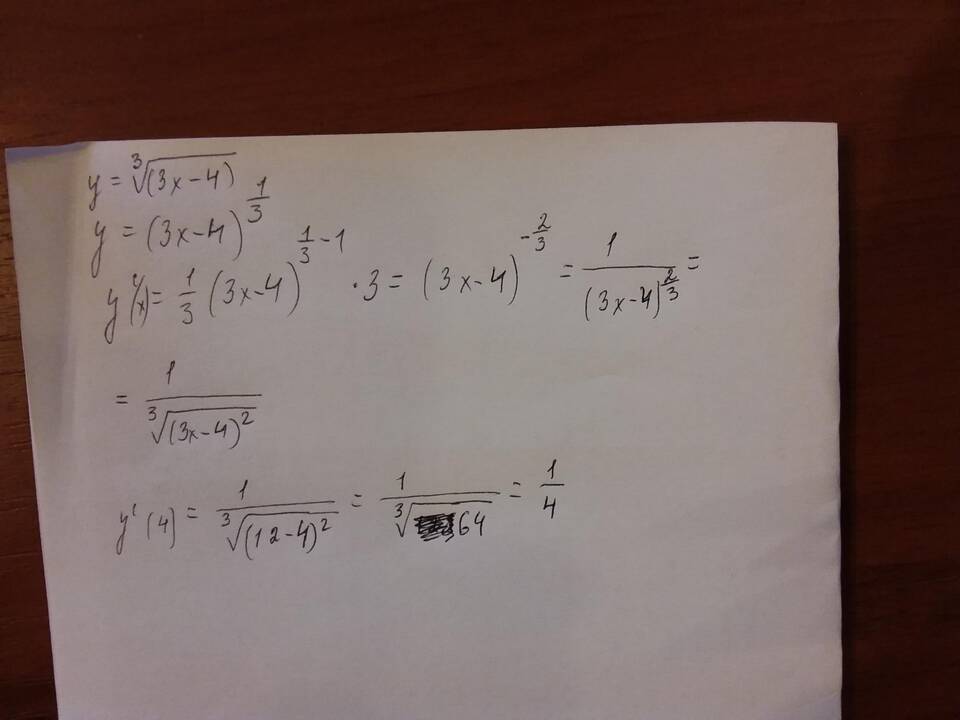 y = ∛(3x-4)
y = (3x-4)^(1/3)
y'(x) = 1/3 (3x-4)^(1/3 - 1) · 3 = (3x-4)^(-2/3) = 1/(3x-4)^(2/3) =
= 1/∛(3x-4)²
y'(4) = 1/∛(12-4)² = 1/∛64 = 1/4